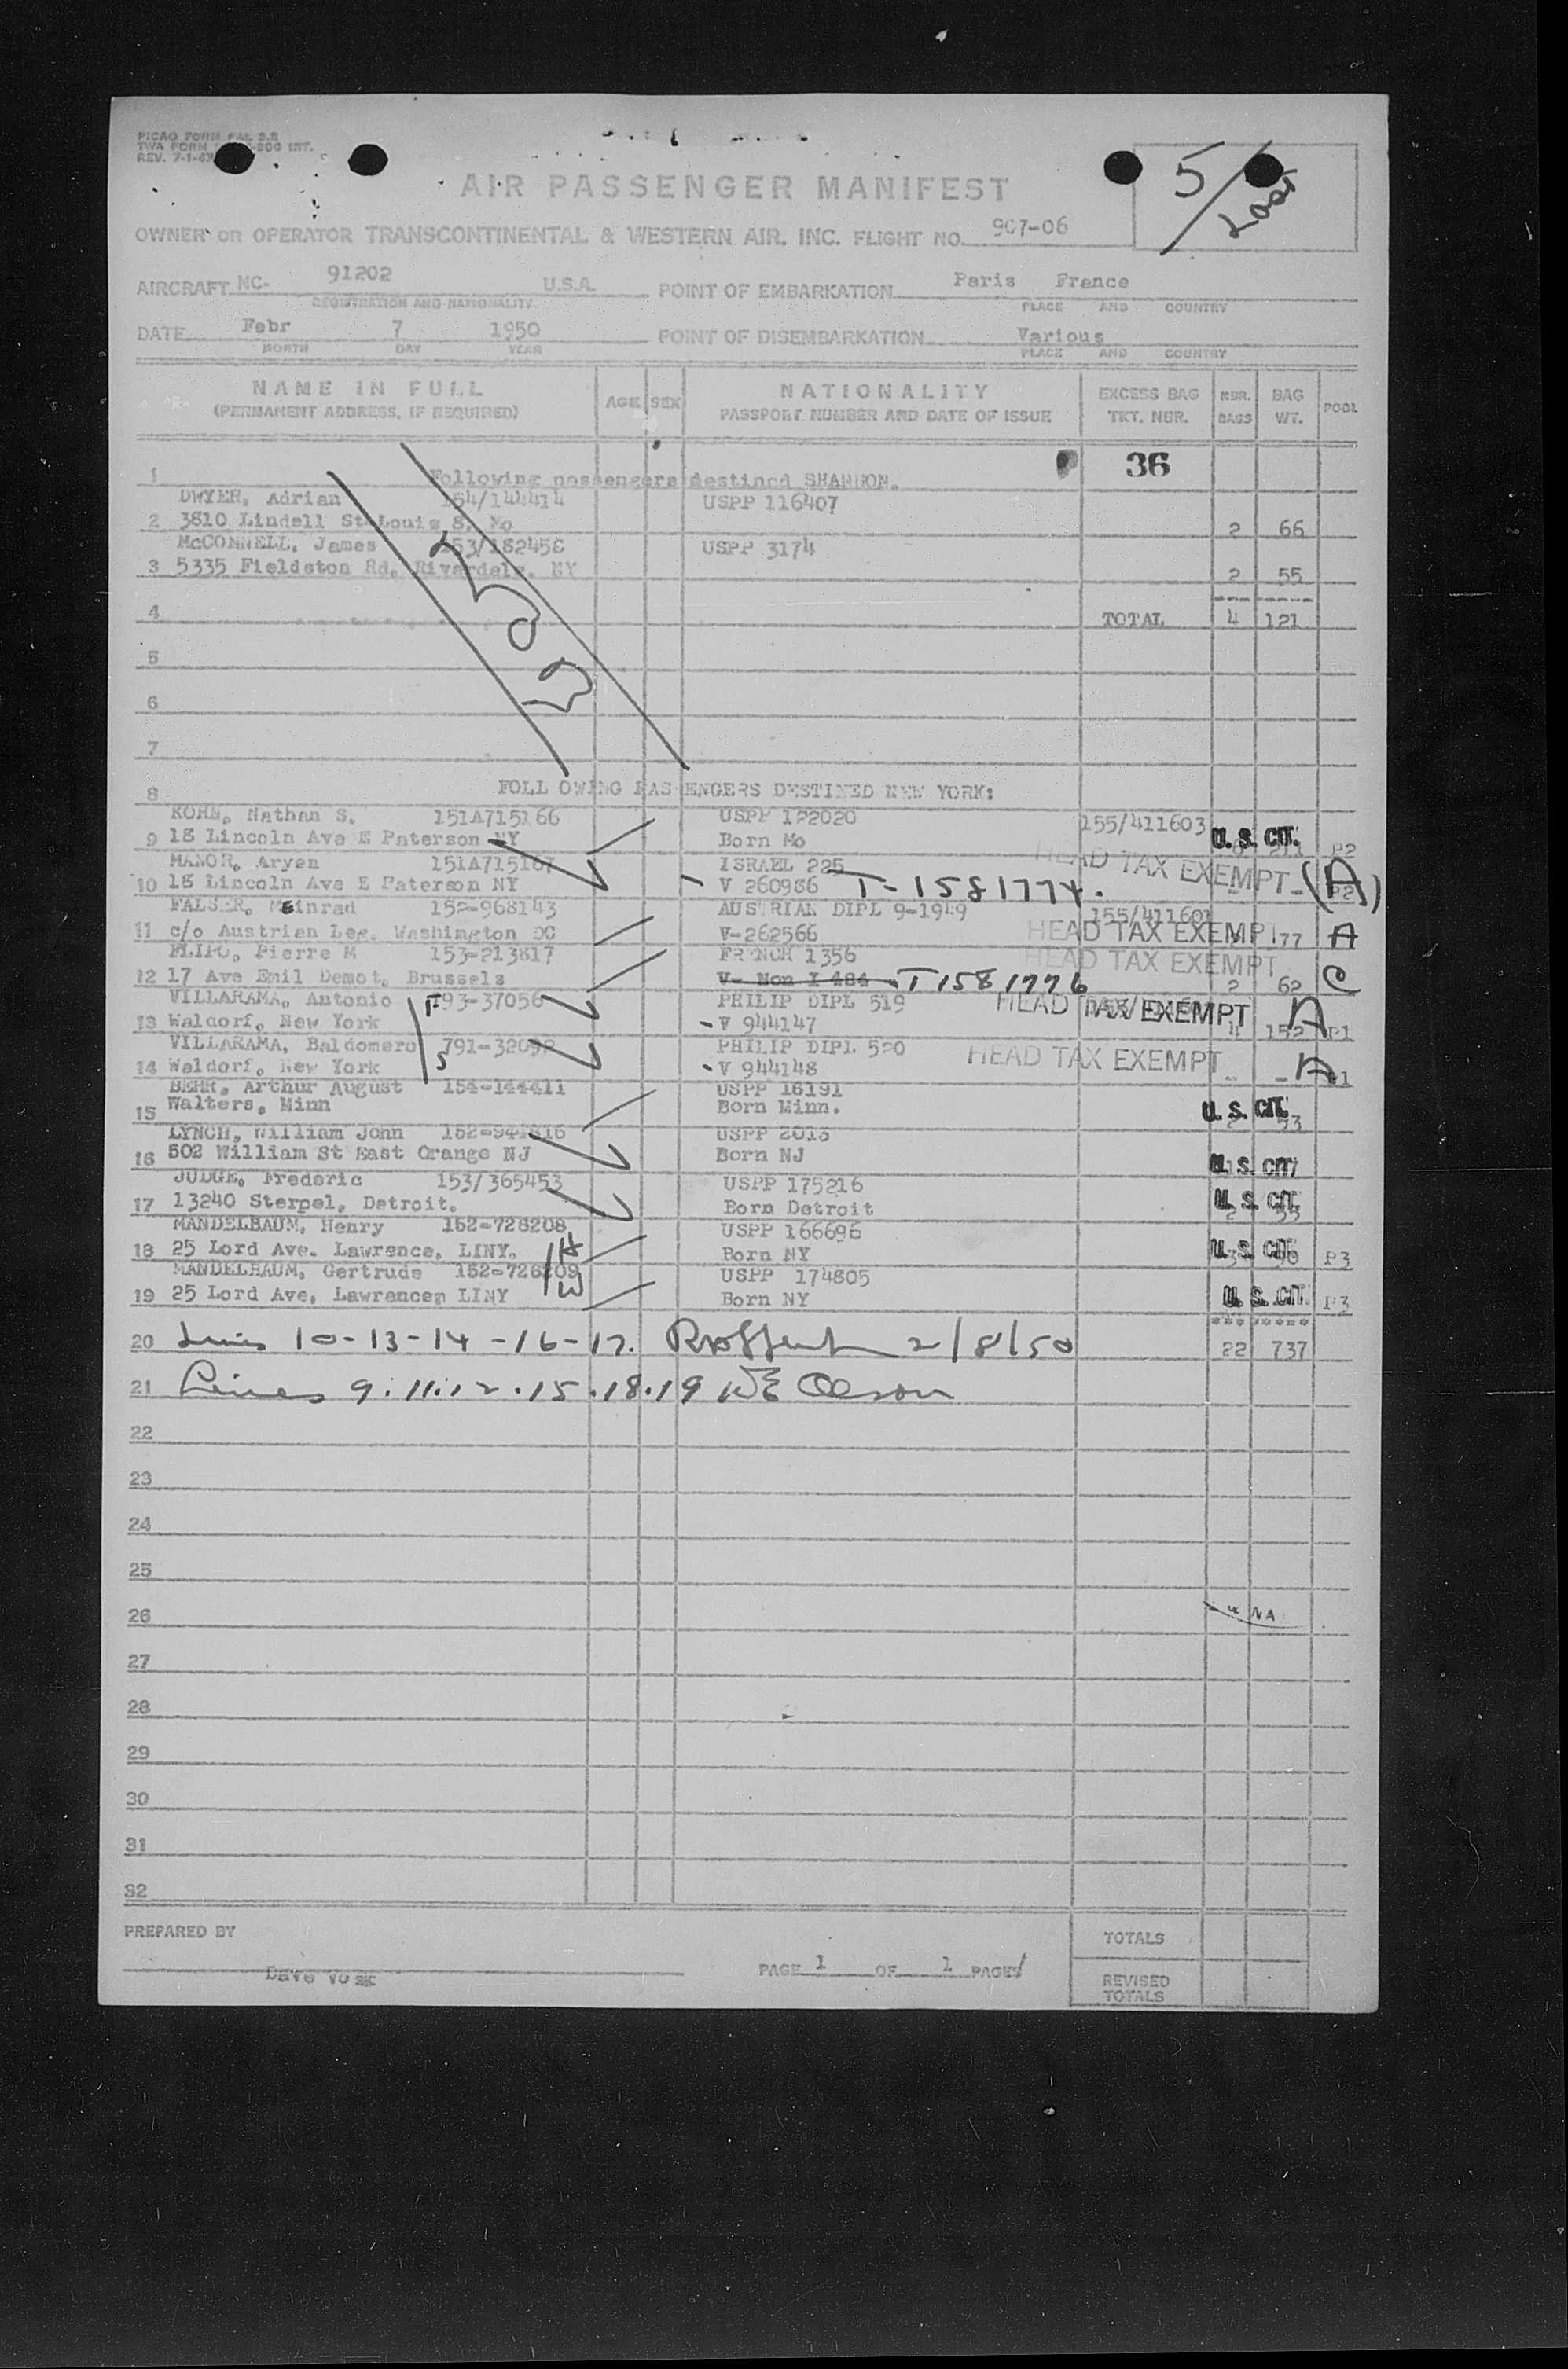 PICAO FORM FAL 3.2
TWA FORM -800 INT.
REV. 7-1-47
AIR PASSENGER MANIFEST
5/
OWNER OR OPERATOR TRANSCONTINENTAL & WESTERN AIR. INC. FLIGHT NO. 907-06
AIRCRAFT NC- 91202 U.S.A. POINT OF EMBARKATION Paris France
REGISTRATION AND NATIONALITY PLACE AND COUNTRY
DATE Febr 7 1950 POINT OF DISEMBARKATION Various
MONTH DAY YEAR PLACE AND COUNTRY
NAME IN FULL AGE SEX NATIONALITY EXCESS BAG NBR. BAG POOL
(PERMANENT ADDRESS, IF REQUIRED) PASSPORT NUMBER AND DATE OF ISSUE TKT. NBR. BAGS WT.
36
1 Following passengers destined SHANNON.
DWYER, Adrian 154/144414 USPP 116407
2 3810 Lindell St Louis 8, Mo 2 66
McCONNELL, James 153/182458 USPP 3174
3 5335 Fieldston Rd, Riverdale, NY 2 55
4 TOTAL 4 121
5
6
7
8 FOLLOWING PASSENGERS DESTINED NEW YORK:
KOHN, Nathan S. 151A715166 USPP 122020 155/411603
9 18 Lincoln Ave E Paterson NY Born Mo U. S. CIT. P2
MANOR, Aryen 151A715167 ISRAEL 225 HEAD TAX EXEMPT
10 18 Lincoln Ave E Paterson NY V 260986 T-1581774. - (A) P2
FALSER, Meinrad 152-968143 AUSTRIAN DIPL 9-1949 155/411601
11 c/o Austrian Leg. Washington DC V-262566 HEAD TAX EXEMPT 77 A
FLIPO, Pierre M 153-213817 FRENCH 1356 HEAD TAX EXEMPT
12 17 Ave Emil Demot, Brussels V- Non I 484 T1581776 2 62 C
VILLARAMA, Antonio F 793-37056 PHILIP DIPL 519 HEAD TAX EXEMPT
13 Waldorf, New York V 944147 4 152 A P1
VILLARAMA, Baldomero 791-32092 PHILIP DIPL 520 HEAD TAX EXEMPT
14 Waldorf, New York S V 944148 - - A P1
BEHR, Arthur August 154-144411 USPP 16191
15 Walters, Minn Born Minn. U. S. CIT.
LYNCH, William John 152-941816 USPP 2013
16 502 William St East Orange NJ Born NJ U. S. CIT
JUDGE, Frederic 153/365453 USPP 175216
17 13240 Sterpel, Detroit. Born Detroit U. S. CIT. 2 55
MANDELBAUM, Henry 152-726208 USPP 166696
18 25 Lord Ave. Lawrence, LINY. H Born NY U. S. CIT. 3 P3
MANDELBAUM, Gertrude 152-726209 USPP 174805
19 25 Lord Ave, Lawrencem LINY W Born NY U. S. CIT. P3
20 Lines 10-13-14-16-17. 2/8/50 22 737
21 Lines 9.11.12.15.18.19 WE Olson
22
23
24
25
26 NA
27
28
29
30
31
32
PREPARED BY TOTALS
Dave PAGE 1 OF 1 PAGES
REVISED
TOTALS